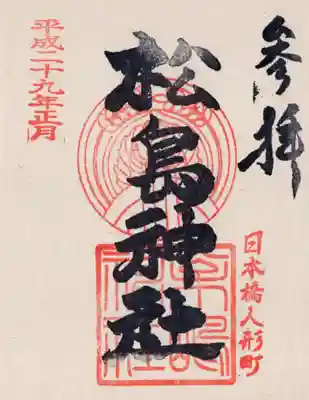 参拝
松島神社
日本橋人形町
平成二十九年正月